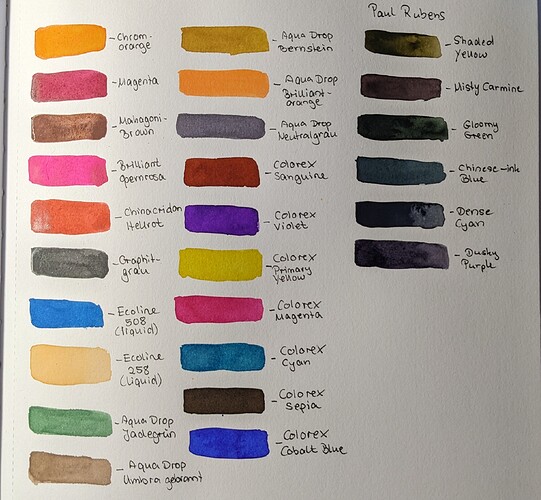 Chrom-
orange
Magenta
Mahagoni-
Brown
Brilliant
Opernrosa
Chinacridon
Hellrot
Graphit-
grau
Ecoline
508
(liquid)
Ecoline
258
(liquid)
Aqua Drop
Jadegrün
Aqua Drop
Umbra gebrannt
Aqua Drop
Bernstein
Aqua Drop
Brilliant-
orange
Aqua Drop
Neutralgrau
Colorex
Sanguine
Colorex
Violet
Colorex
Primary
Yellow
Colorex
Magenta
Colorex
Cyan
Colorex
Sepia
Colorex
Cobalt Blue
Paul Rubens
Shaded
Yellow
Misty Carmine
Gloomy
Green
Chinese-ink
Blue
Dense
Cyan
Dusky
Purple